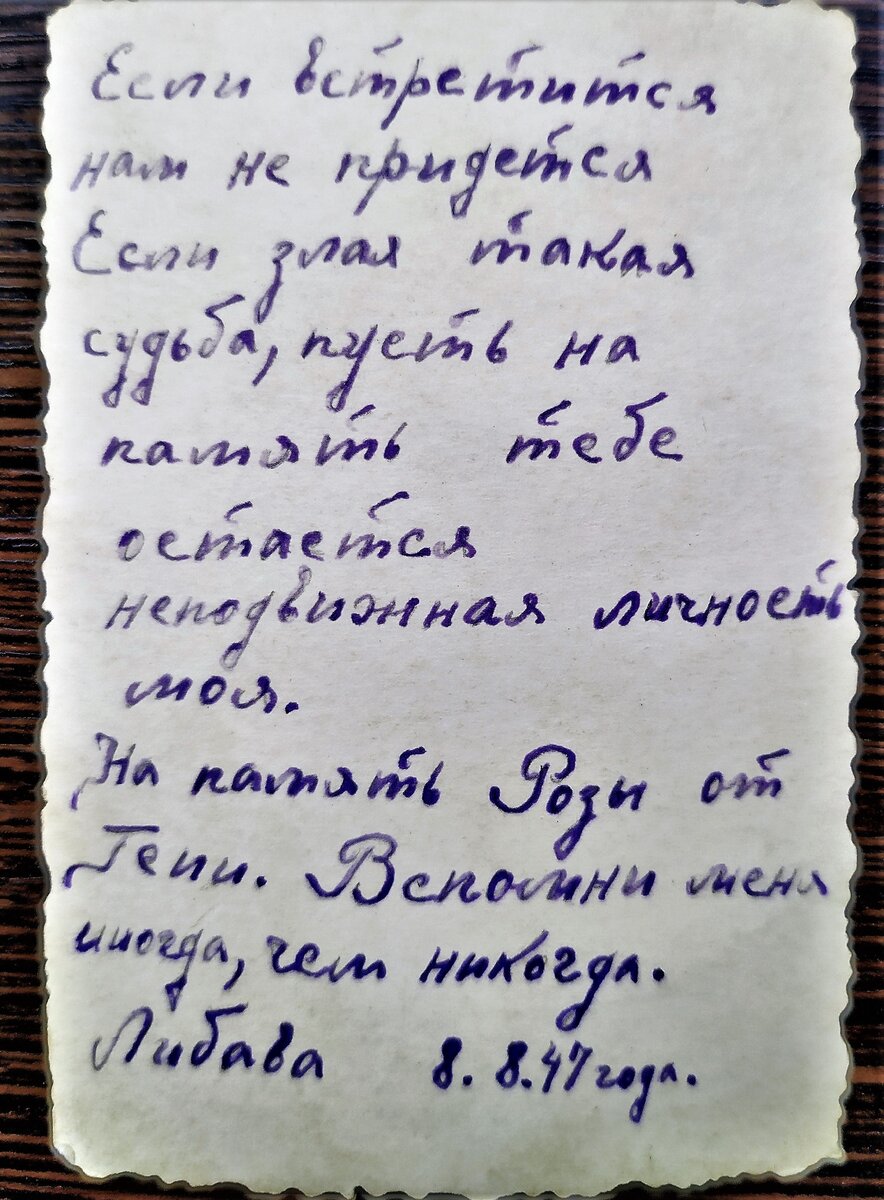 Если встретится
нам не придется
Если злая такая
судьба, пусть на
память тебе
остается
неподвижная личность
моя.
На память Розы от
Гени. Вспомни меня
иногда, чем никогда.
Либава 8. 8.47 года.